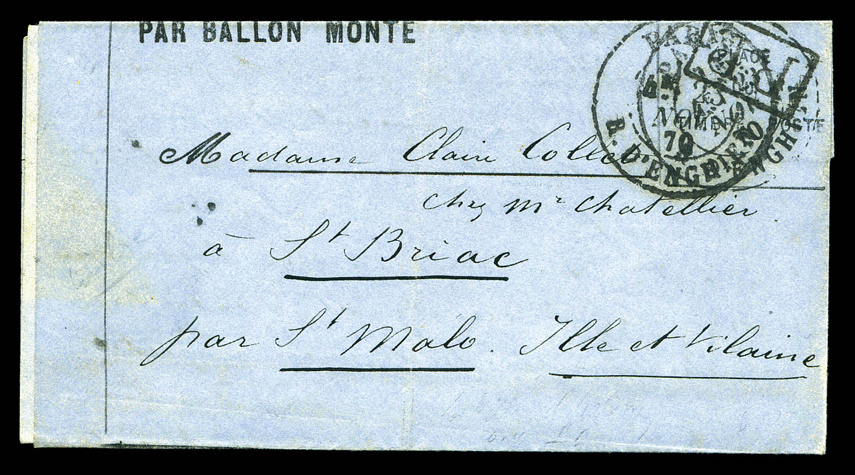 PAR BALLON MONTE
PARIS
NOV.
70
R. D'ENGHIEN
PLACE
Madame Claire Collet
chez Mr Chatellier.
à St Briac
par St Malo. Ille et Vilaine